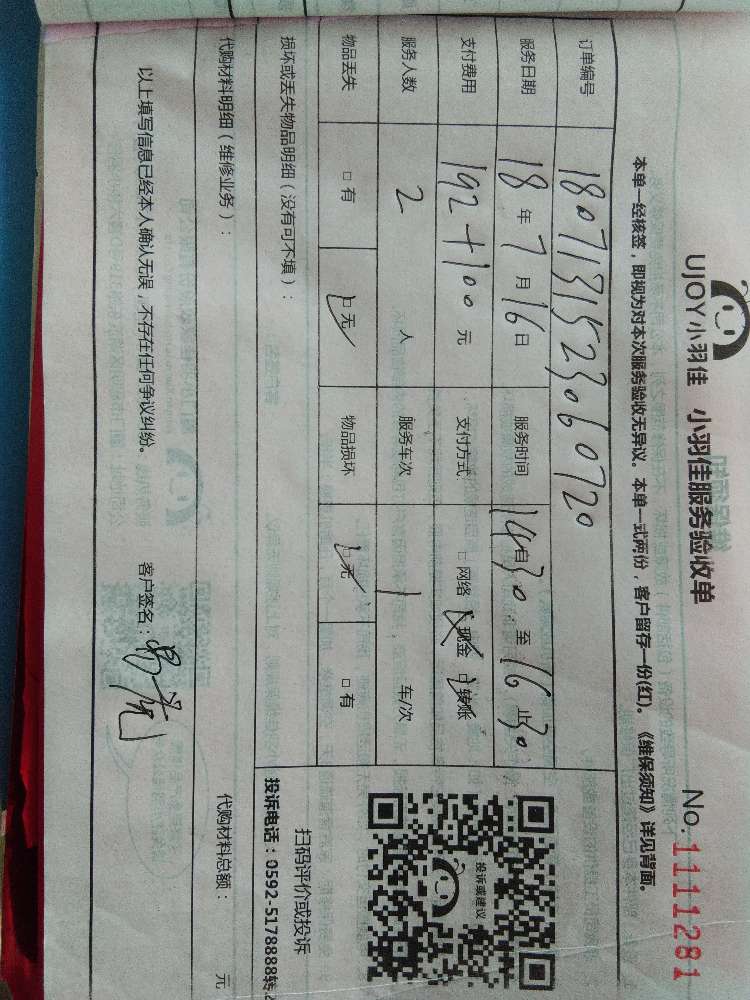 UJOY小羽佳 小羽佳服务验收单 No.1111281
本单一经核签，即视为对本次服务验收无异议。本单一式两份，客户留存一份(红)。《维保须知》详见背面。
订单编号 1807131523060720
服务日期 18年7月16日 服务时间 自1430至1630止
支付费用 192+100元 支付方式 □网络 □现金 □转账
服务人数 2人 服务车次 1车/次
物品丢失 □有 □无 物品损坏 □无 □有
投诉或建议
扫码评价或投诉
投诉电话：0592-5178888转
损坏或丢失物品明细（没有可不填）：
代购材料明细（维修业务）： 代购材料总额： 元
以上填写信息已经本人确认无误，不存在任何争议纠纷。 客户签名：